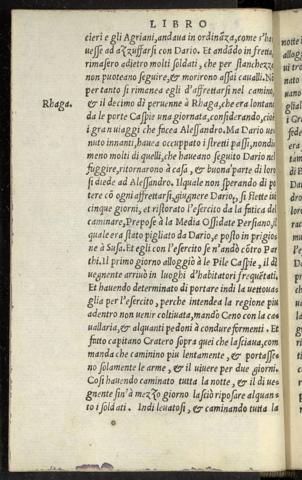 LIBRO
cieri e gli Agriani, andaua in ordinãza, come s'ha
uesse ad azzuffarsi con Dario. Et andãdo in fretta,
rimasero adietro molti soldati, che per stanchezza
non puoteano seguire, & morirono assai caualli. Nõ
per tanto si rimanea egli d'affrettarsi nel camino,
& il decimo dì peruenne à Rhaga, che era lontana
Rhaga.
da le porte Caspie una giornata, considerando, cioè
i gran uiaggi che facea Alessandro. Ma Dario ue
nuto innanti, hauea occuppato i stretti passi, nondi
meno molti di quelli, che haueano seguito Dario nel
fuggire, ritornarono à casa, & buona parte di loro
si diede ad Alessandro. Ilquale non sperando di po
tere cõ ogni affrettarsi, giugnere Dario, si stette iui
cinque giorni, et ristorato l'esercito da la fatica del
caminare, Prepose à la Media Ossidate Persiano, il
quale era stato pigliato da Dario, e posto in prigio
ne à Susa. Et egli con l'esercito se n'andò cõtro Par
thi. Il primo giorno alloggiò à le Pile Caspie, il dì
uegnente arriuò in luoghi d'habitatori frequẽtati,
Et hauendo determinato di portare indi la uettoua
glia per l'esercito, perche intendea la regione più
adentro non uenir coltiuata, mandò Ceno con la ca
uallaria, & alquanti pedoni à condure formenti. Et
fatto capitano Cratero sopra quei che lasciaua, com
manda che caminino piu lentamente, & portasse
no solamente le arme, & il uiuere per due giorni.
Cosi hauendo caminato tutta la notte, & il dì ue-
gnente sin'à mezzo giorno lasciò riposare alquan-
to i soldati. Indi leuatosi, & caminando tutta la